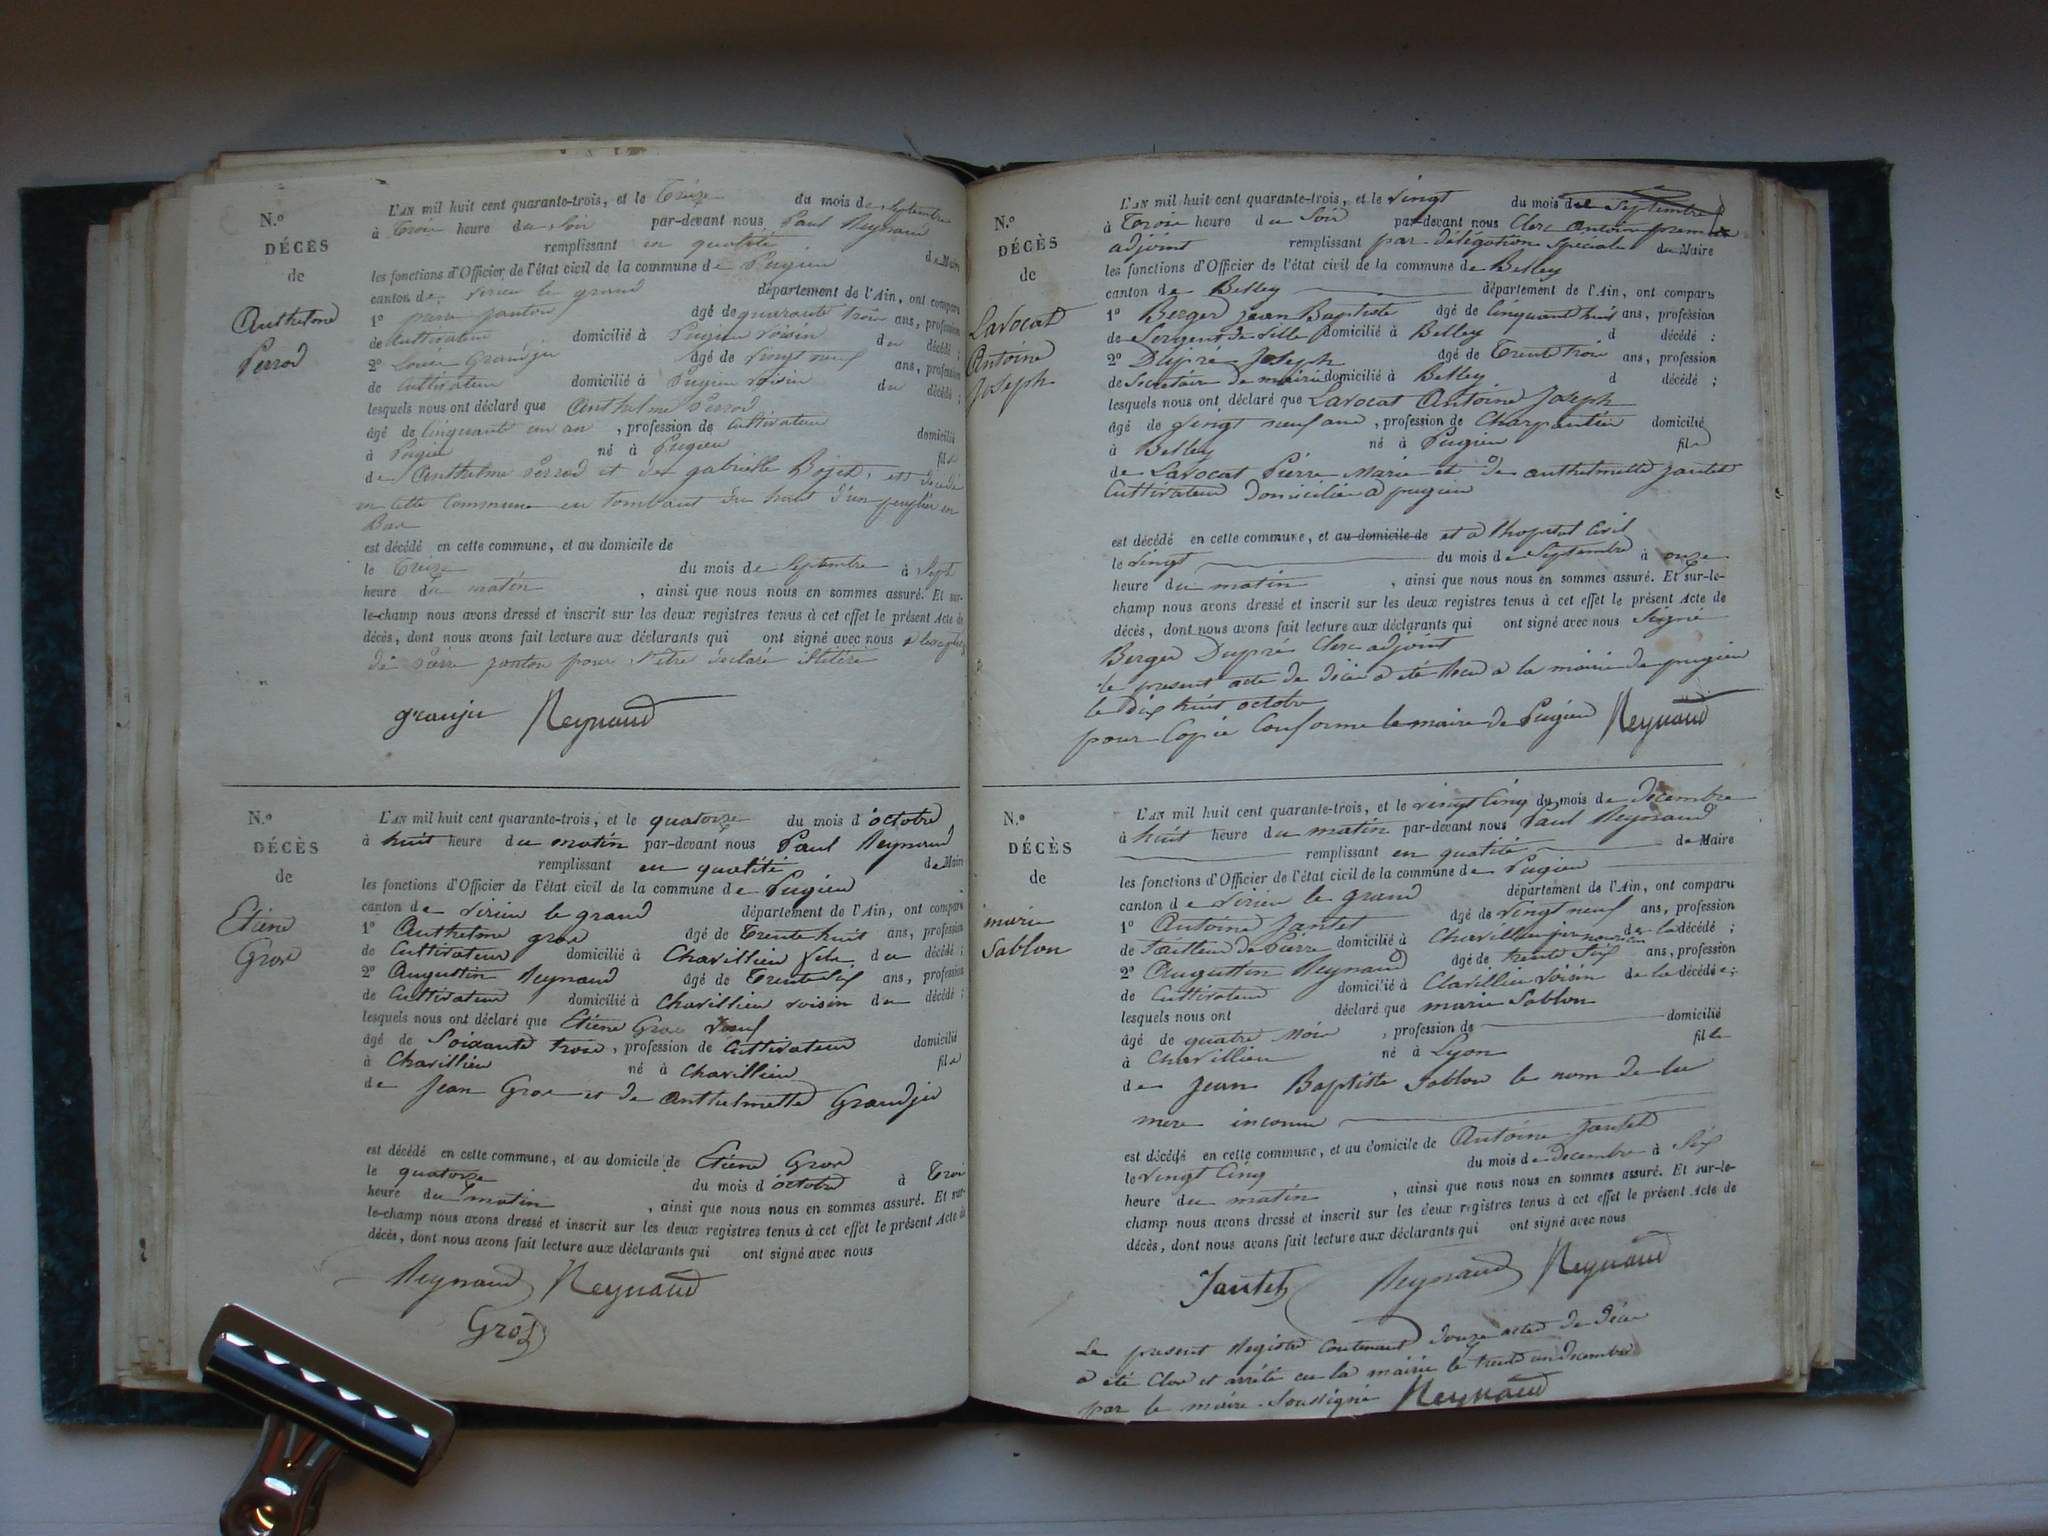 N.º
DÉCÈS
de
Anthelme
Perrod
L'AN mil huit cent quarante-trois, et le Treize du mois de Septembre
à Trois heure du Soir par-devant nous Paul Reynaud
remplissant en qualité de Maire
les fonctions d'Officier de l'état civil de la commune de Pugieu
canton de Virieu le grand département de l'Ain, ont comparu
1º pierre janton âgé de quarante trois ans, profession
de Cultivateur domicilié à Pugieu voisin du décédé ;
2º Louis Grandju âgé de vingt neuf ans, profession
de Cultivateur domicilié à Pugieu voisin du décédé ;
lesquels nous ont déclaré que Anthelme Perrod
âgé de Cinquante un an , profession de Cultivateur domicilié
à Pugieu né à Pugieu fils
de Anthelme Perrod et de gabrielle Bojet, est décédé
en cette Commune en tombant du haut d'un peuplier en
Bas
est décédé en cette commune, et au domicile de
le Treize du mois de Septembre à Sept
heure du matin , ainsi que nous nous en sommes assuré. Et sur-
le-champ nous avons dressé et inscrit sur les deux registres tenus à cet effet le présent Acte de
décès, dont nous avons fait lecture aux déclarants qui ont signé avec nous
de Pierre janton pour s'être déclaré illitéré
granju Reynaud
N.º
DÉCÈS
de
Etiene
Gros
L'AN mil huit cent quarante-trois, et le quatorze du mois d'octobre
à huit heure du matin par-devant nous Paul Reynaud
remplissant en qualité de Maire
les fonctions d'Officier de l'état civil de la commune de Pugieu
canton de Virieu le grand département de l'Ain, ont comparu
1º Anthelme gros âgé de Trente huit ans, profession
de Cultivateur domicilié à Chavillieu fils du décédé ;
2º Augustin Reynaud âgé de Trente Six ans, profession
de Cultivateur domicilié à Chavillieu voisin du décédé ;
lesquels nous ont déclaré que Etiene Gros veuf
âgé de Soixante trois , profession de Cultivateur domicilié
à Chavillieu né à Chavillieu fils
de Jean Gros et de Anthelmette Grandju
est décédé en cette commune, et au domicile de Etiene Gros
le quatorze du mois d'octobre à Trois
heure du matin , ainsi que nous nous en sommes assuré. Et sur-
le-champ nous avons dressé et inscrit sur les deux registres tenus à cet effet le présent Acte de
décès, dont nous avons fait lecture aux déclarants qui ont signé avec nous
Reynaud Reynaud
Gros
N.º
DÉCÈS
de
Lavocat
Antoine
Joseph
L'AN mil huit cent quarante-trois, et le vingt du mois de Septembre
à Trois heure du Soir par-devant nous Clerc Antoine premier
adjoint remplissant par délégation spéciale du Maire
les fonctions d'Officier de l'état civil de la commune de Belley
canton de Belley département de l'Ain, ont comparu
1º Berger jean Baptiste âgé de Cinquant huit ans, profession
de Sergent de ville domicilié à Belley d décédé ;
2º Dupré Joseph âgé de Trente trois ans, profession
de Secrétaire de mairie domicilié à Belley d décédé ;
lesquels nous ont déclaré que Lavocat Antoine Joseph
âgé de vingt neuf ans , profession de Charpentier domicilié
à Belley né à Pugieu fils
de Lavocat Pierre Marie et de anthelmette jantet
Cultivateur domicilié a pugieu
est décédé en cette commune, et au domicile de et a lhopital Civil
le vingt du mois de Septembre à onze
heure du matin , ainsi que nous nous en sommes assuré. Et sur-le-
champ nous avons dressé et inscrit sur les deux registres tenus à cet effet le présent Acte de
décès, dont nous avons fait lecture aux déclarants qui ont signé avec nous Signé
Berger Dupré Clerc adjoint
le present acte de décès a été a la mairie de pugieu
le dix huit octobre
pour Copie Conforme le maire de Pugieu Reynaud
N.º
DÉCÈS
de
marie
Sablon
L'AN mil huit cent quarante-trois, et le vingt Cinq du mois de Décembre
à huit heure du matin par-devant nous Paul Reynaud
remplissant en qualité de Maire
les fonctions d'Officier de l'état civil de la commune de Pugieu
canton de Virieu le grand département de l'Ain, ont comparu
1º Antoine Jantet âgé de vingt neuf ans, profession
de Tailleur de Pierre domicilié à Chavillieu père nouricier de la décédé ;
2º Augustin Reynaud âgé de trente Six ans, profession
de Cultivateur domicilié à Chavillieu voisin de la décédée ;
lesquels nous ont déclaré que marie Sablon
âgé de quatre Mois , profession de domicilié
à Chavillieu né à Lyon fille
de Jean Baptiste Sablon le nom de la
mere inconnu
est décédé en cette commune, et au domicile de Antoine jantet
le vingt Cinq du mois de décembre à Six
heure du matin , ainsi que nous nous en sommes assuré. Et sur-le-
champ nous avons dressé et inscrit sur les deux registres tenus à cet effet le présent Acte de
décès, dont nous avons fait lecture aux déclarants qui ont signé avec nous
Jantet Reynaud Reynaud
Le present Registre Contenant douze actes de décès
a été Clos et arrêté en la mairie le trente un decembre
par le maire Soussigné Reynaud